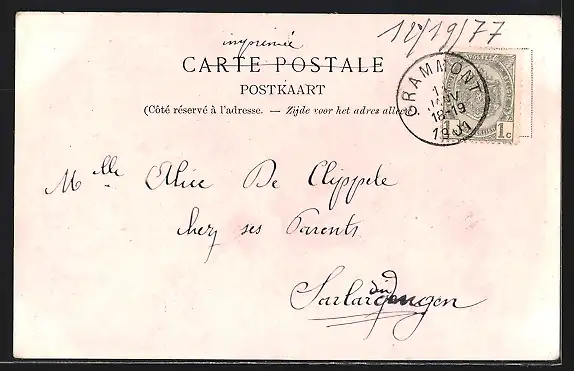 12/19/77
imprimée
CARTE POSTALE
POSTKAART
(Côté réservé à l'adresse. — Zijde voor het adres alleen.)
GRAMMONT
18-19
1901
1 1c
Mlle Alice De Clippele
chez ses Parents
Sarlardingen